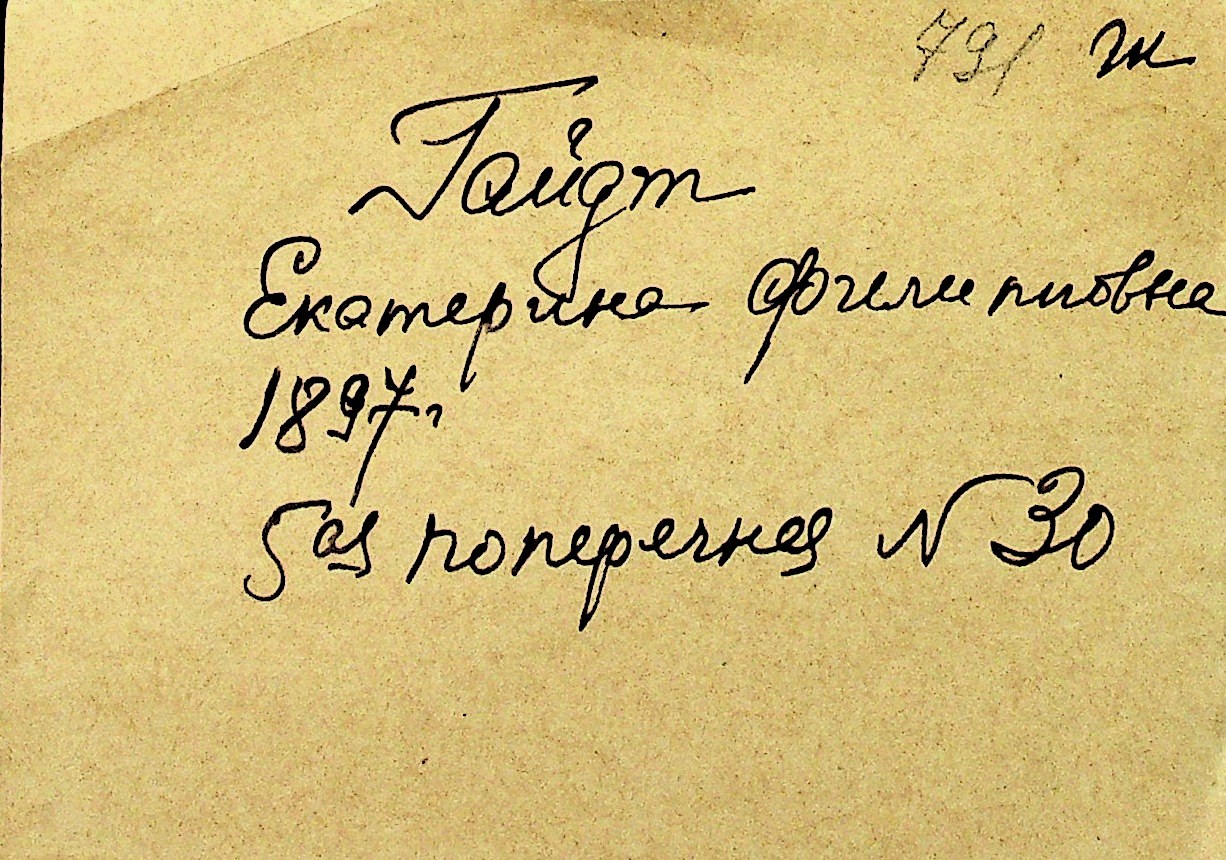 791 гк
Гайдт
Екатерина Филипповна
1897г
5ая поперечная N 30